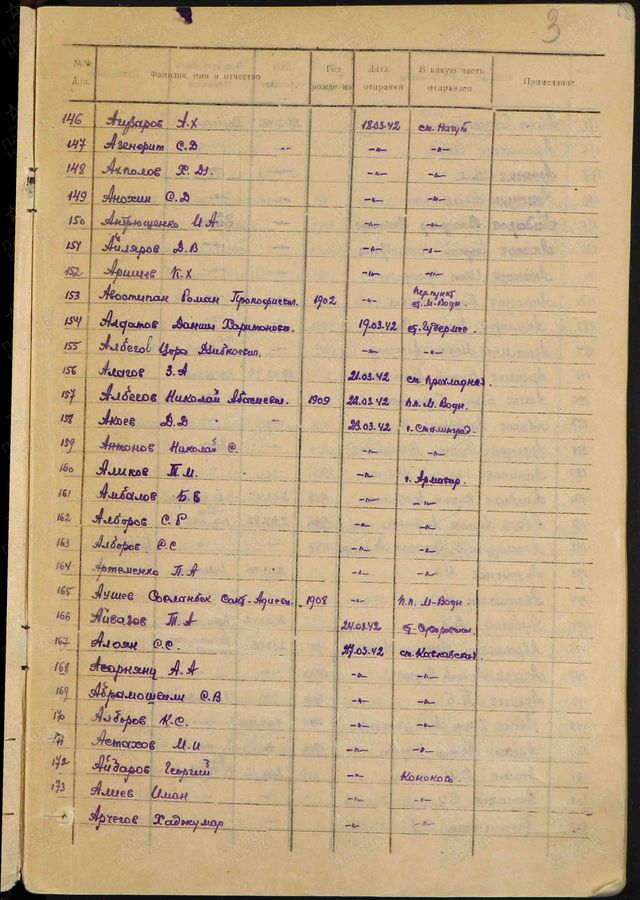 3
№№ п.п. Фамилия, имя и отчество Год рождения Дата отправки В какую часть отправлен Примечание
146 Агузаров А.Х 18.03.42 ст. Нагут
147 Агенорит С.Д -"- -"-
148 Ахполов Х.Ш. -"- -"-
149 Анохин С.Д -"- -"-
150 Антрющенко И.А -"- -"-
151 Айляров Д.В -"- -"-
152 Аришев К.Х -"- -"-
153 Авостипан Роман Прокофиевич. 1902 -"- Перпункт ст. М-Воды.
154 Алдатов Даниил Харитонович. 19.03.42 ст. Гудермес
155 Албегов Цора -"- -"-
156 Алагов З.А 21.03.42 ст. Прохладная.
157 Албегов Николай 1909 22.03.42 п.п. М. Воды.
158 Акоев Д.Д 23.03.42 г. Сталинград.
159 Антонов Николай С. -"-
160 Аликов Т.М. -"- г. Армавир.
161 Амбалов Б.Е -"- -"-
162 Алборов С.Г -"- -"-
163 Алборов С.С -"- -"-
164 Артеменко П.А -"- -"-
165 Аушев Сосланбек 1908 -"- п.п. М-Воды
166 Айвазов Т.А 24.03.42 ст.
167 Алоян С.С. 27.03.42 ст. Кавкавская.
168 Асорнянц А.А -"- -"-
169 Абрамошвили С.В -"- -"-
170 Алборов К.С. -"- -"-
171 Астахов М.И -"- -"-
172 Айдаров Георгий -"- Коноково.
173 Алиев Иман -"- -"-
Арчегов Хаджумар -"- -"-